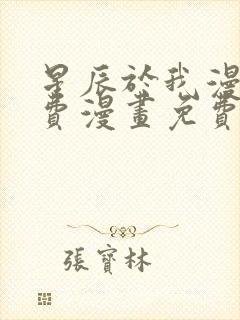 星辰於我漫
費漫畫免費
張寶林